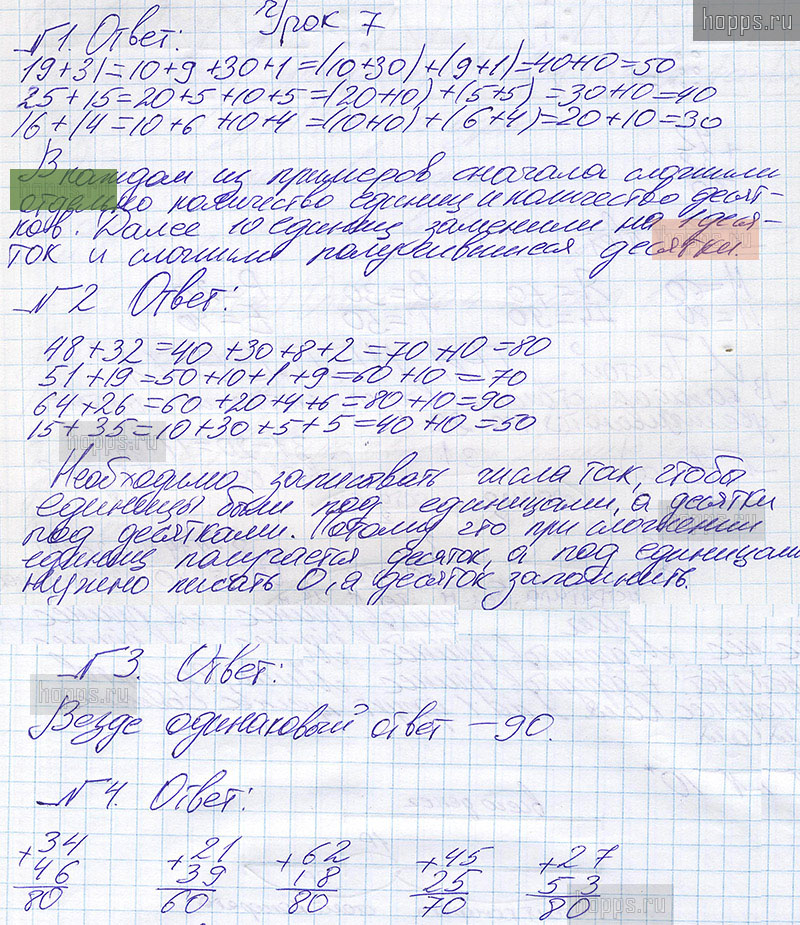 Урок 7
hopps.ru
№1. Ответ:
19+31=10+9+30+1=(10+30)+(9+1)=40+10=50
25+15=20+5+10+5=(20+10)+(5+5)=30+10=40
16+14=10+6+10+4=(10+10)+(6+4)=20+10=30
В каждом из примеров сначала сложили
отдельно количество единиц и количество десят-
ков. Далее 10 единиц заменили на 1 деся-
ток и сложили получившиеся десятки.
№2 Ответ:
48+32=40+30+8+2=70+10=80
51+19=50+10+1+9=60+10=70
64+26=60+20+4+6=80+10=90
15+35=10+30+5+5=40+10=50
hopps.ru
Необходимо записывать числа так, чтобы
единицы были под единицами, а десятки
под десятками. Потому что при сложении
единиц получается десяток, а под единицами
нужно писать 0, а десяток запомнить.
№3. Ответ:
hopps.ru
Везде одинаковый ответ – 90.
№4. Ответ:
+34 +21 +62 +45 +27
46 39 18 25 53
80 60 80 70 80
hopps.ru